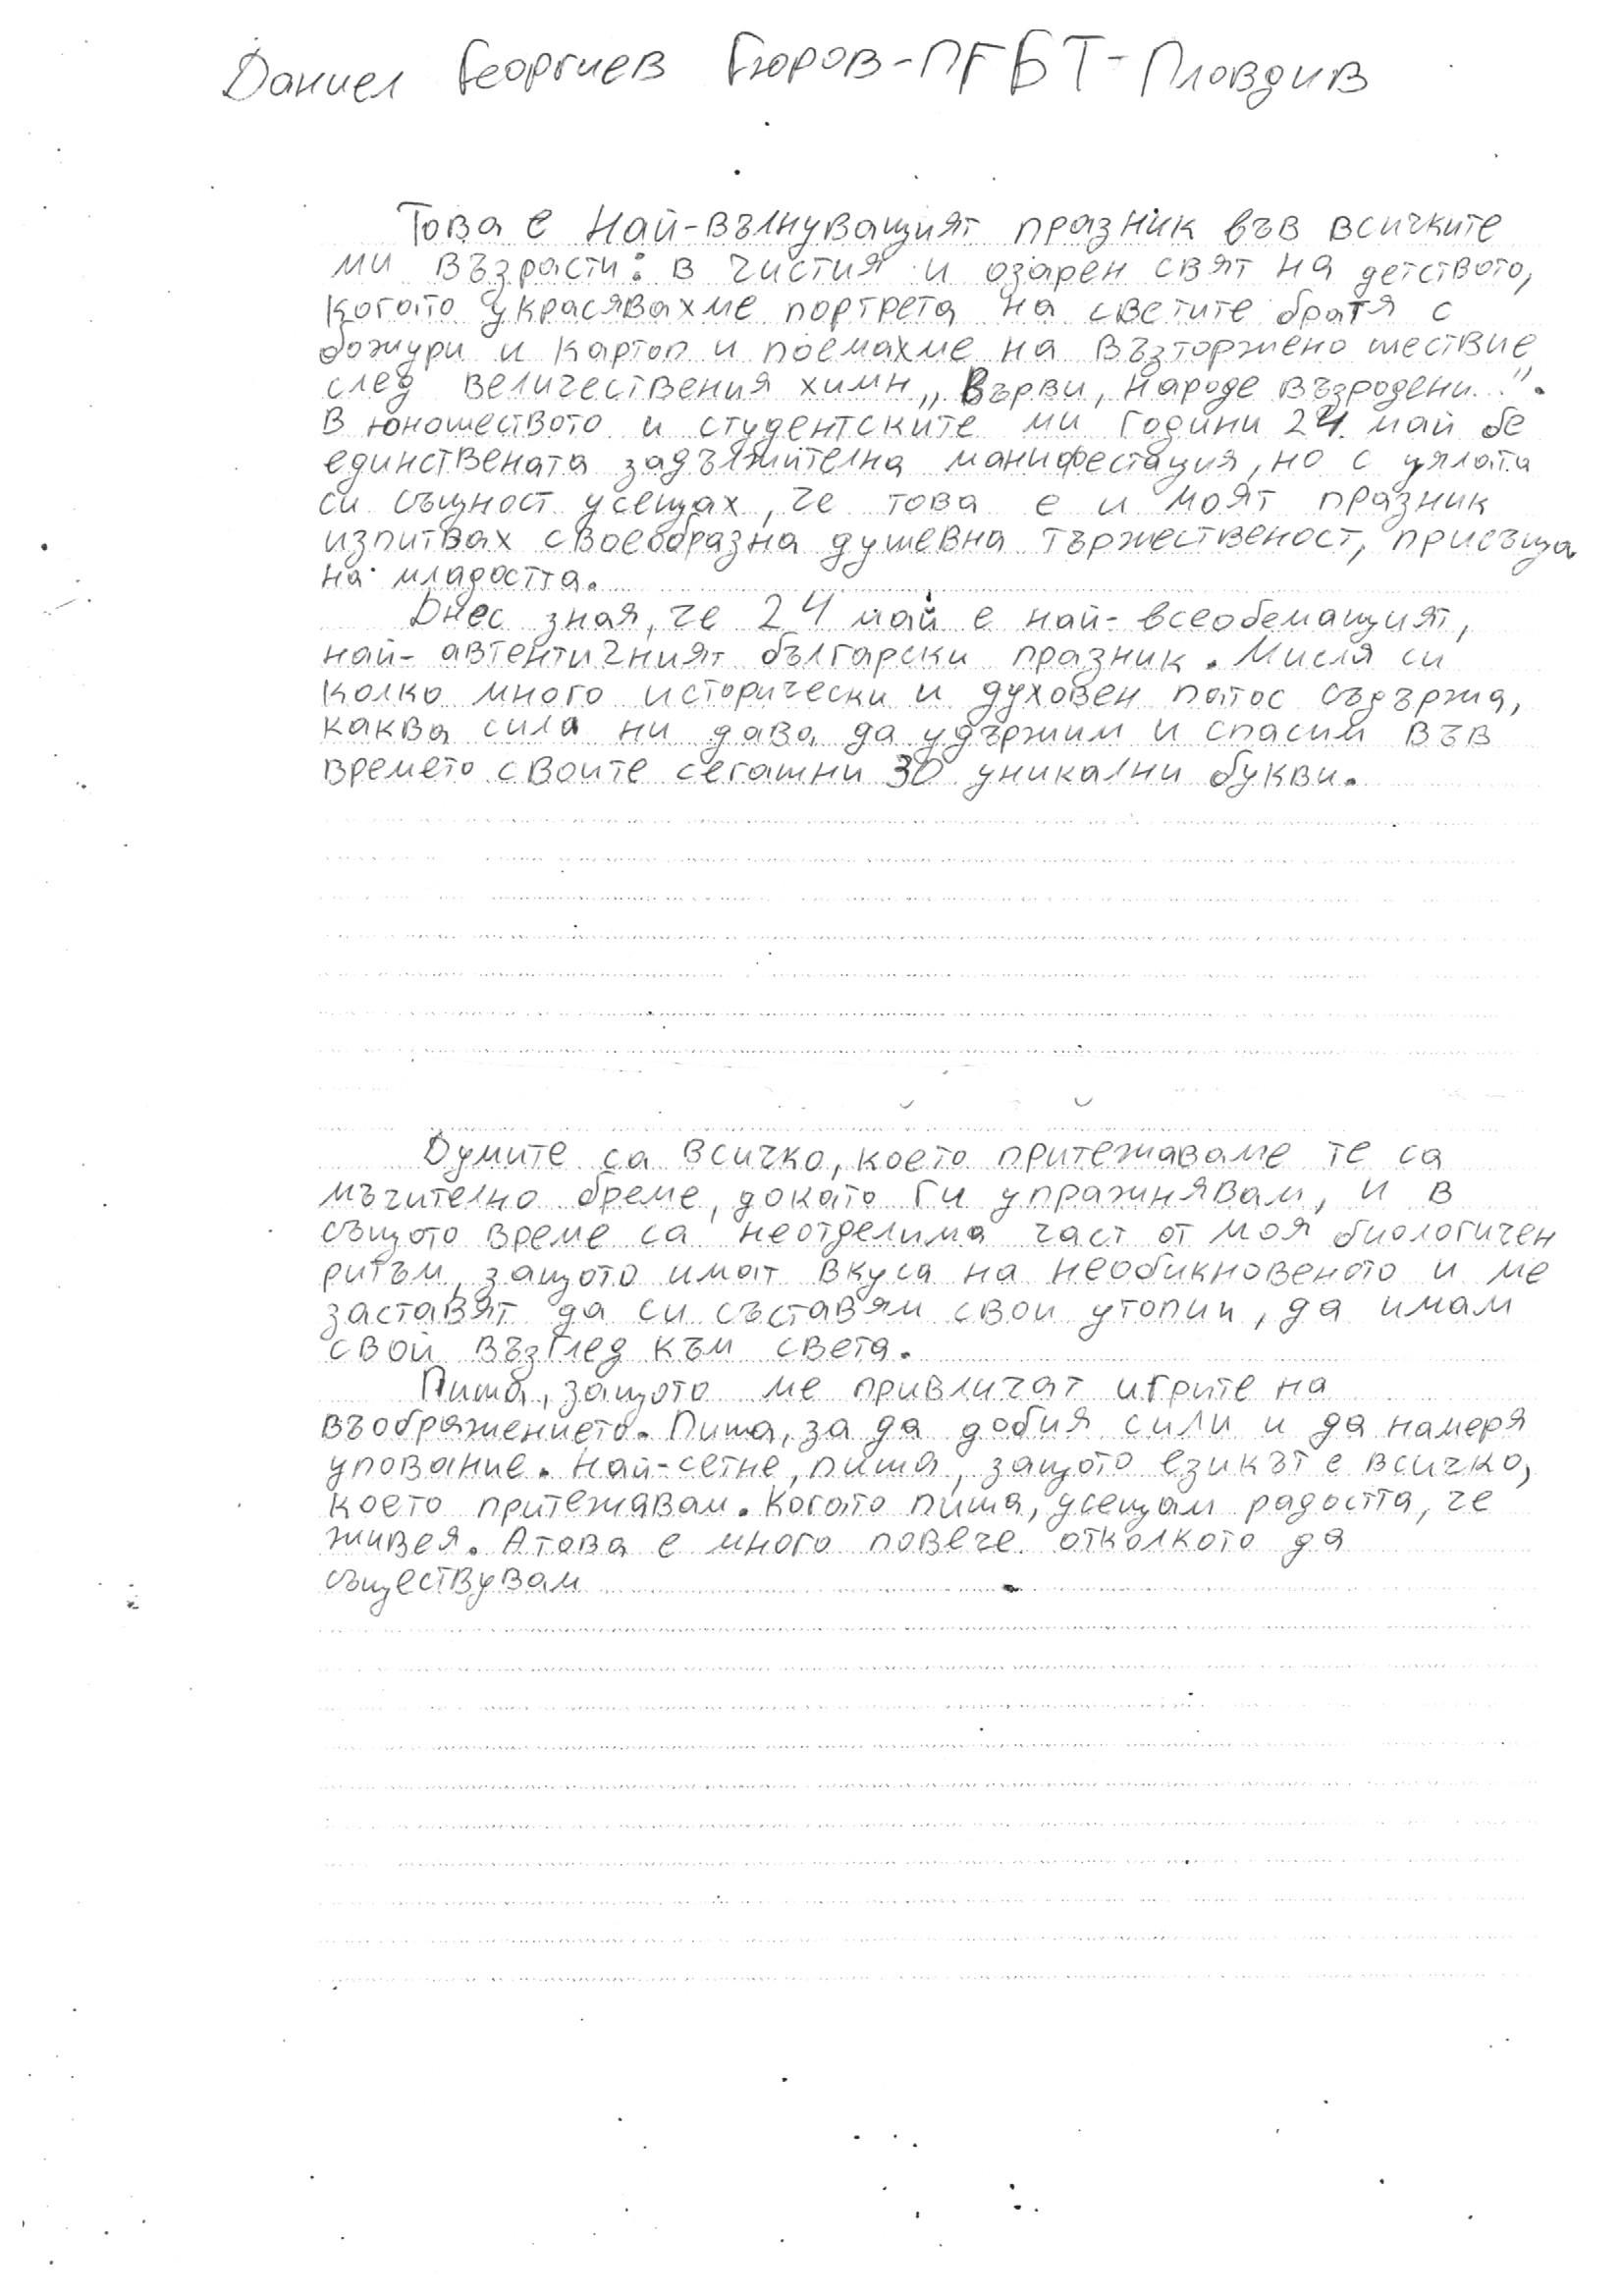 Даниел Георгиев Гюров-ПГБТ-Пловдив
Това е Най-вълнуващият празник във всичките
ми възрасти: в чистия и озарен свят на детството,
когато украсявахме портрета на светите братя с
божури и картоп и поемахме на възторжено шествие
след величествения химн „Върви, народе възродени..".
В юношеството и студентските ми години 24 май бе
единствената задължителна манифестация, но с цялата
си същност усещах, че това е и моят празник
изпитвах своеобразна душевна тържественост, присъща
на младостта.
Днес зная, че 24 май е най-всеобемащият,
най-автентичният български празник. Мисля си
колко много исторически и духовен патос съдържа,
каква сила ни дава да удържим и спасим във
времето своите сегашни 30 уникални букви.
Думите са всичко, което притежаваме те са
мъчително бреме, докато ги упражнявам, и в
същото време са неотделима част от моя биологичен
ритъм, защото имат вкуса на необикновеното и ме
заставят да си съставям свои утопии, да имам
свой възглед към света.
Пиша, защото ме привличат игрите на
въображението. Пиша, за да добия сили и да намеря
упование. Най-сетне, пиша, защото езикът е всичко,
което притежавам. Когато пиша, усещам радостта, че
живея. А това е много повече отколкото да
съществувам